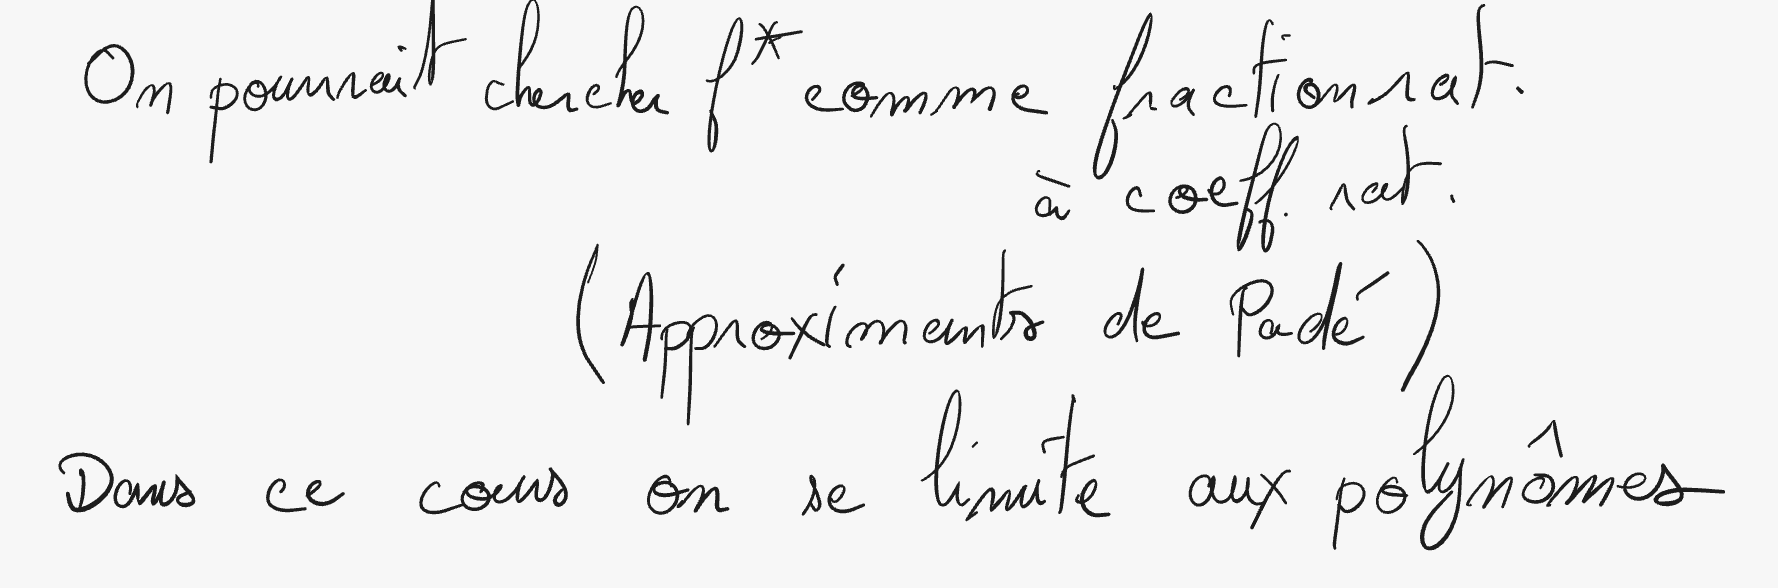 On pourrait chercher f* comme fraction rat.
à coeff. rat.
(Approximants de Padé)
Dans ce cours on se limite aux polynômes